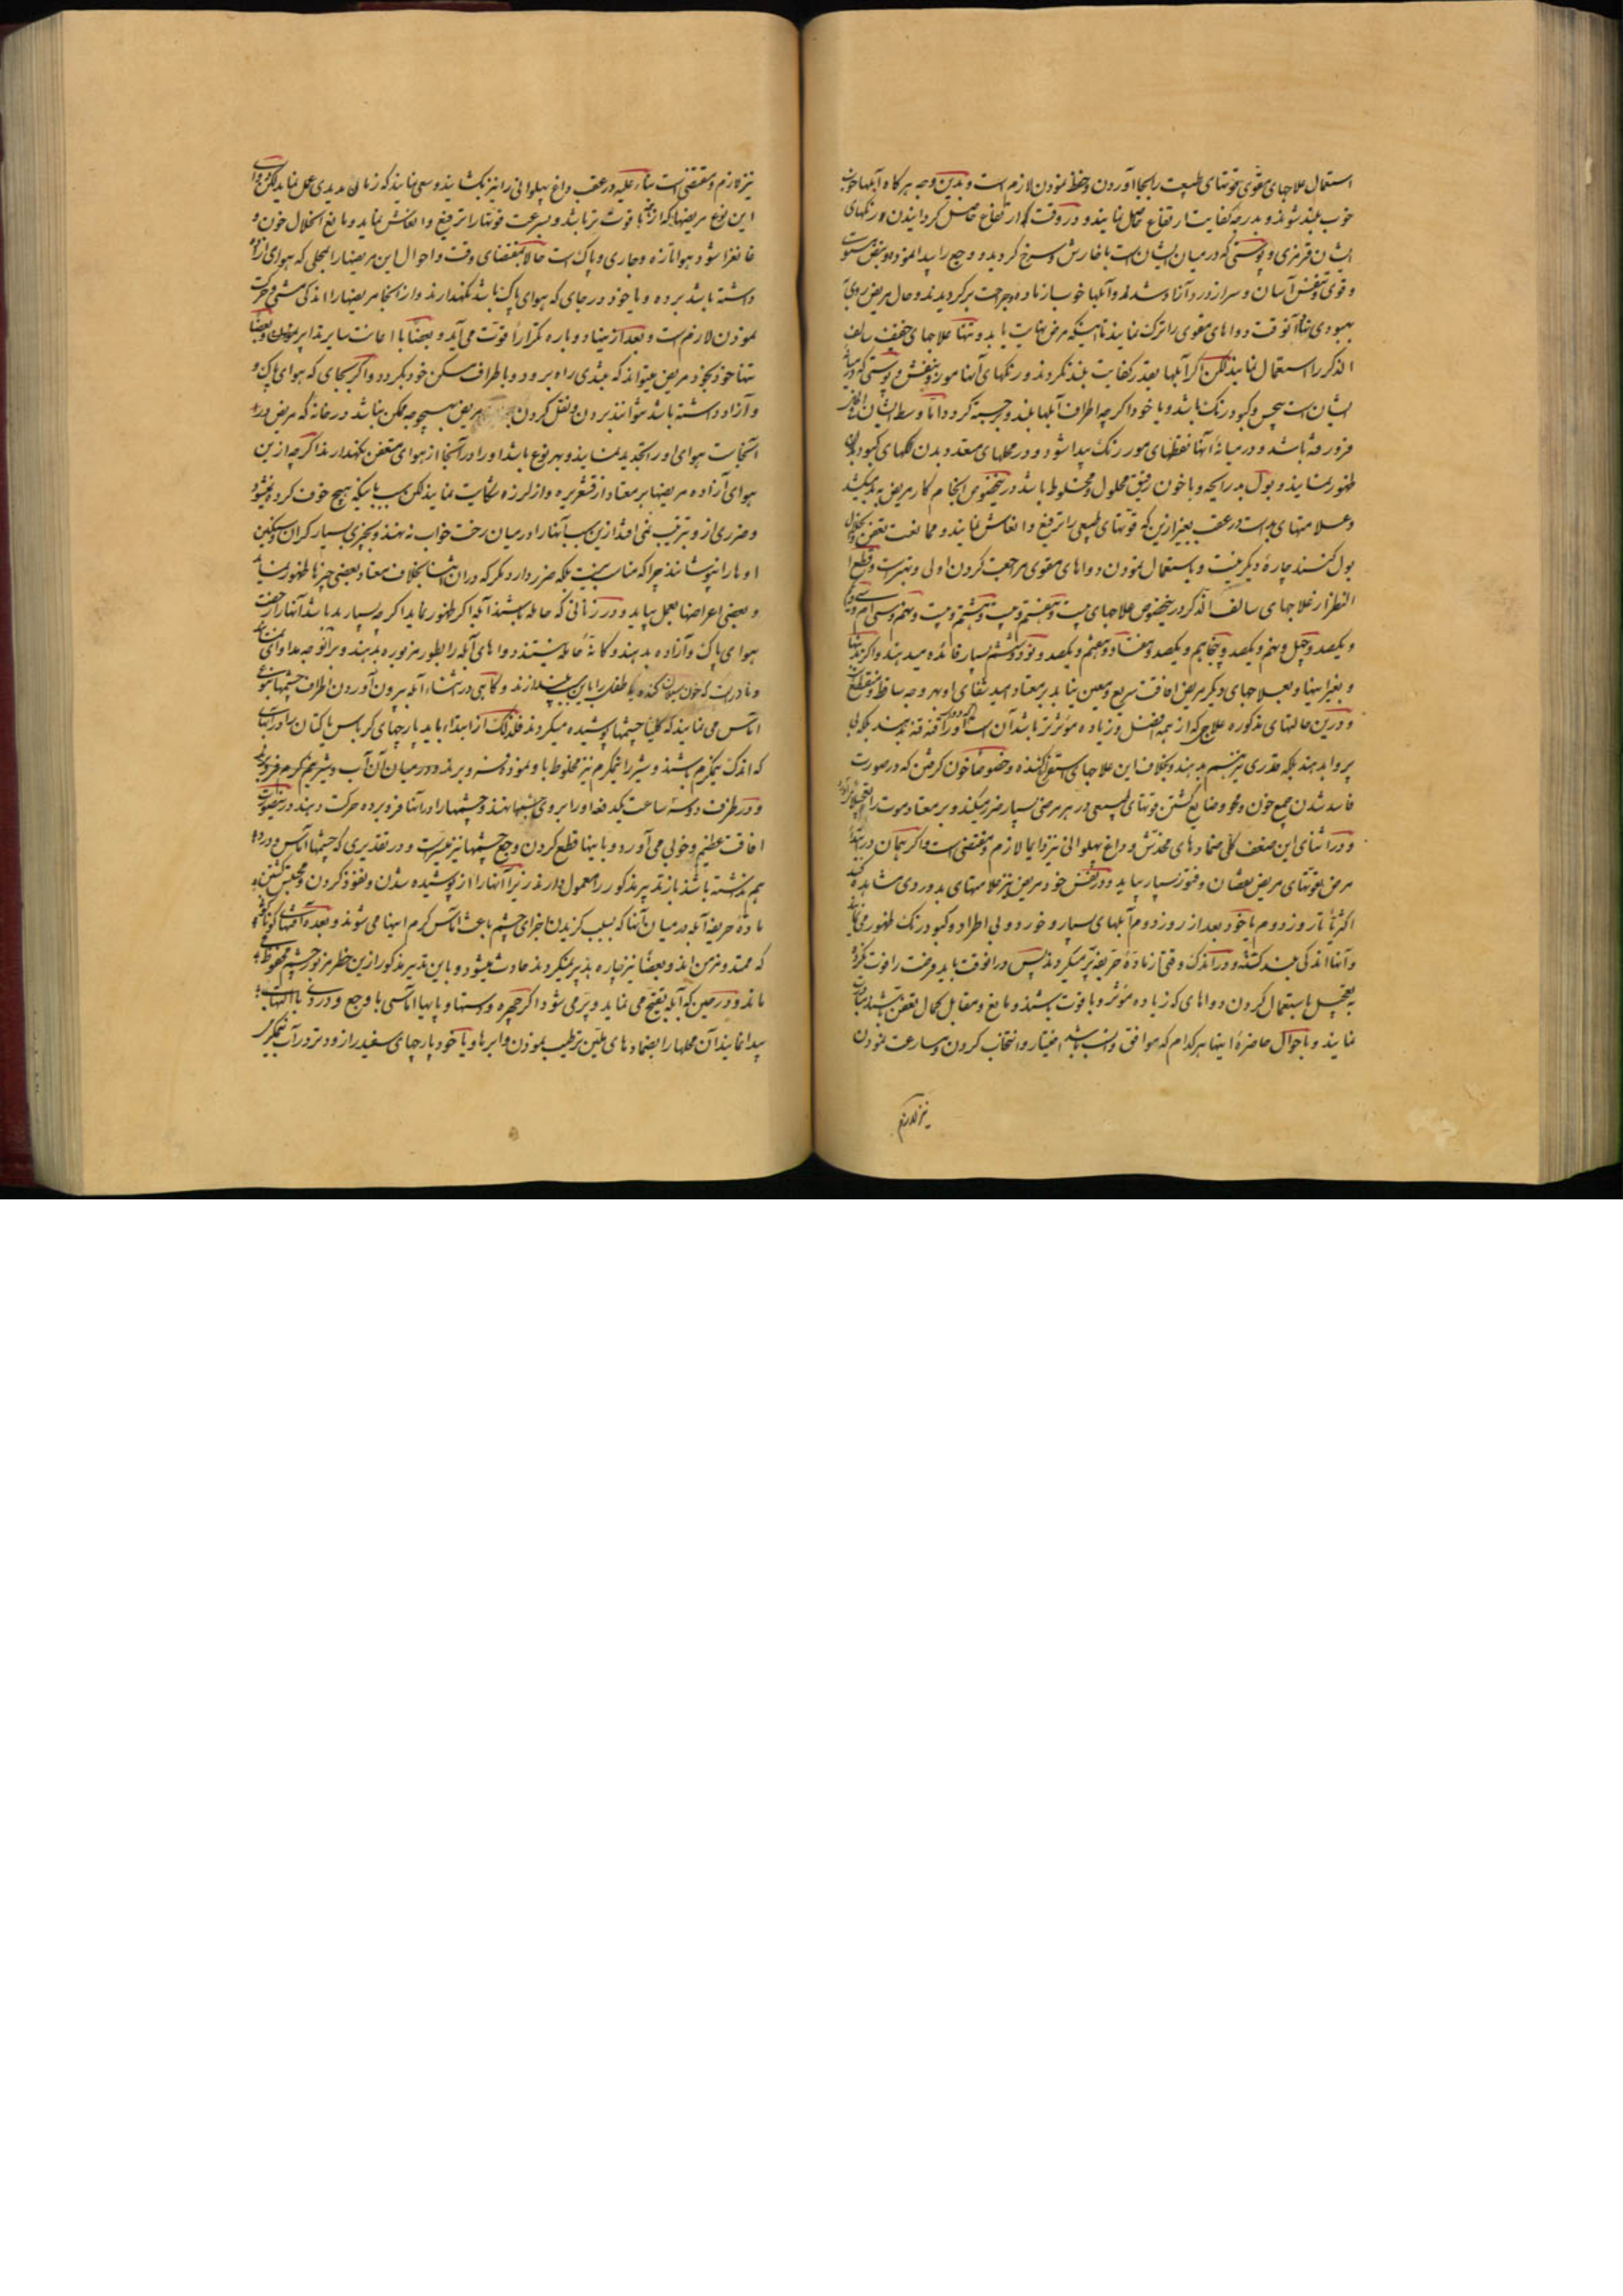 استعمال علاجهای مقوی قوتهای طبیعت را بجا آوردن و حفظ نمودن لازم است و بدین وجه هر کاه آبلها خوب
خوب بلند شوند و بدرجه کفایت ارتفاع حاصل نمایند و در وقت که ارتفاع حاصل کردانیدن و رنکهای
ایشان قرمزی و پوستی که در میان ایشان است با خارش و سرخ کردیده و وجع را پیدا نموده و نبض
و قوی و تنفس آسان و سر از درد آزاد شده و آبلها خوب از ماده و جراحت پر کردیدند و حال مریض روی
بهبودی نهاد آنوقت دواهای مقوی را ترک نمایند تا اینکه مرض نهایت یابد و تنها علاجهای خفیف سالف
الذکر را استعمال نمایند لکن اکر آبلها بقدر کفایت بلند نکردند و رنکهای آنها مور و بنفش و پوستی که در میان
ایشان است بی حس و کبود رنک باشد و یا خود اکرچه اطراف آبلها بلند و برجسته کردد اما وسط ایشان
فرو رفته باشد و در میانه آنها نقطهای مور رنک پیدا شود و در محلهای معده و بدن لکهای کبود
ظهور نمایند و بول بد رایحه و با خون رقیق محلول و مخلوط باشد درینخصوص انجام کار مریض به بد میکشد
و علامتهای بد است در عقب بغیر ازین که قوتهای طبیعی را ترفیع و انعاش نمایند و ممانعت تعفن
بول کنند چاره دیکر نیست و باستعمال نمودن دواهای مقوی مراجعت کردن اولی و بهتر است و قطع
النظر از علاجهای سالف الذکر درینخصوص علاجهای بیست و هفتم و بیست و هشتم و بیست و نهم و سی ام
و یکصد و چهل و نهم و یکصد و پنجاهم و یکصد و هفتاد و هفتم و یکصد و نود و ششم بسیار فائده میدهند و اکر
و بغیر اینها و بعلاجهای دیکر مریض افاقت سریع و معین نیابد بر معتاد امید شفای او بهر وجه ساقط و منقطع
و در این حالتهای مذکوره علاجی که از همه افضل و زیاده مؤثرتر باشد آن است
پر و آبدهند بلکه قدری نیز شیر بدهند و بخلاف این علاجهای استفراغ کننده و خصوصا خون کرفتن که در صورت
فاسد شدن جمیع خون و محو و ضایع کشتن قوتهای طبیعی در هر مرضی بسیار ضرر میکند و بر معتاد موت را
و در اثنای این ضعف کلی ضمادهای مخدش و داغ پهلوانی نیز دایما لازم و مقتضی است و اکر همان در ابتدای
مرض قوتهای مریض نقصان و فتور بسیار بیابد و در نفس خود مریض نیز علامتهای بد و ردی مشاهده
اکثریا تا روز دوم یا خود بعد از روز دوم آبلهای بسیار و خورد و بی اطراد و کبود رنک ظهور می
و آنها اندکی بلند کشته و در اندک وقتی از ماده حریفه پر میکردند پس در انوقت باید فرصت را فوت نکرده
به تعجیل باستعمال کردن دواهای که زیاده مؤثر و با قوت باشند و مانع و مقابل کمال تعفن باشند
نمایند و باحوال حاضره اینها هر کدام که موافق و انسب باشد اختیار و انتخاب کردن و مسارعت نمودن
نیز لازم
نیز لازم و مقتضی است بناء علیه در عقب داغ پهلوانی را نیز بکشایند و سعی نمایند که زمان مدیدی عمل نماید
این نوع مریضها که از همه با قوت تر باشد و بسرعت قوتها را ترفیع و انعاش نماید و مانع انحلال خون و
غانغرا شود هوا تازه و جاری و پاک است حالا بمقتضای وقت و احوال این مریضها را بمحلی که هوای آزاد
داشته باشد برده و یا خود در جای که هوای پاک باشد نکهدارند و از انجا مریضها را اندکی مشی و حرکت
نمودن لازم است و بعد از مینا دوباره تکرارا قوت می آید و بعضا با اعانت سایر تدابیر
تنها خود بخود مریض میتواند که بتندی راه برود و باطراف مسکن خود بکردد و اکر بجای که هوای پاک و
و آزاد داشته باشد متوانند بردن و نقل کردن مریض بهیچوجه ممکن نباشد در خانه که مریض در
آنجاست هوای او را تجدید نمایند و بهر نوع باشد او را در آنجا از هوای متعفن نکهدارند اکرچه ازین
هوای آزاده مریضها بر معتاد از قشعریره و از لرزه شکایت نمایند لکن بسبب اینکه هیچ خوف کرده نمیشود
و ضرری از و بترتیب نمی افتد ازین سبب آنها را در میان رخت خواب ننهند و بچیزی بسیار کران و سنکین
او را نپوشانند چرا که مناسب نیست بلکه ضرر دارد مکر که در ان اثنا بخلاف معتاد بعضی چیزها ظهور نماید
و بعضی اعراضها بعمل بیاید و در زنانی که حامله باشند آبله اکر ظهور نماید اکرچه بسیار بد باشد آنها را
هوای پاک و آزاده بدهند و کانه حامله نیستند دواهای آبله را بطور مزبوره بدهند و بر انوجه مداوای
و نادر است که خون سیلان کننده یا طفل را باین سبب بیندازند و کاهی در اثناء آبله بیرون آوردن اطراف چشمها بنوعی
اماس می نمایند که کلیا چشمها پوشیده میکردند فلذلک از ابتداء باید پارچهای کرباس یا کتان را در آبهای
که اندک نیمکرم باشند و شیر را نیمکرم نیز مخلوط با و نموده فرو برند و در میان آن آب و شیر نیم کرم
و در ظرف دو سه ساعت یکدفعه او را بروی چشمها بنهند و چشمها را در آنها فرو برده حرکت دهند درینصورت
افاقت عظیم و خوبی می آورد و باینها قطع کردن وجع چشمها نیز میسر است و در تقدیری که چشمها اماس و درد
هم نداشته باشند باز تدبیر مذکور را معمول دارند زیرا آنها را از پوشیده شدن و نفوذ کردن و محتبس کشتن
ماده حریفه آبله در میان آنها که بسبب کزیدن اجزای چشم باعث اماس کرم اینها می شوند و بعده آفتهای
که ممتد و مزمن اند و بعضا نیز چاره پذیر نمیکردند حادث میشود و باین تدبیر مذکور ازین خطر مزبور چشم محفوظ
ماند و در حین که آبله تقیح می نماید و پر می شود اکر چهره و دستها و پایها اماسی با وجع و دردی با التهاب
پیدا نمایند آن محلها را بضمادهای ملین ترطیب نمودن و ابرها و یا خود پارچهای سفید را زود زود در آب نیمکرم